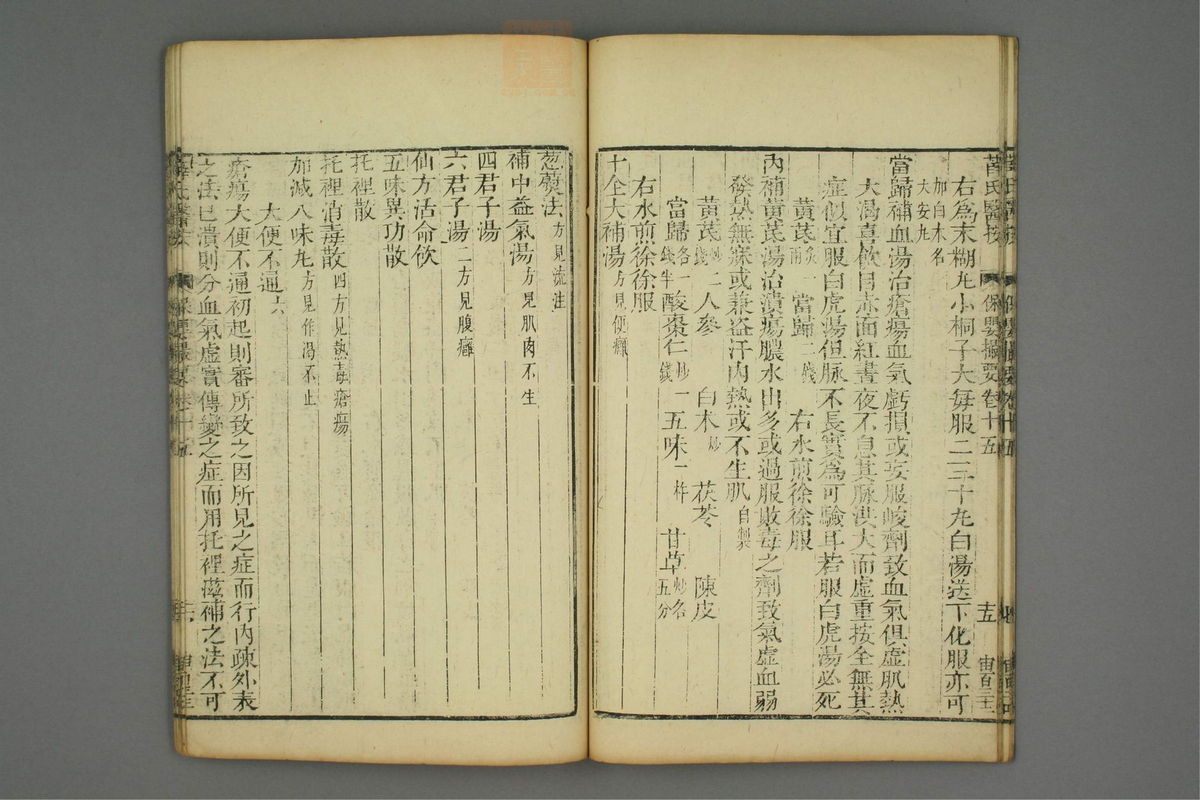 薛氏醫按 保嬰撮要卷十五 十五
右爲末糊丸小桐子大每服二三十丸白湯送下化服亦可
加白朮名大安丸
當歸補血湯治瘡瘍血氣虧損或妄服峻劑致血氣俱虛肌熱
大渴喜飲目赤面紅晝夜不息其脉洪大而虛重按全無其
症似宜服白虎湯但脉不長實爲可驗耳若服白虎湯必死
黃芪炙一兩 當歸二錢 右水煎徐徐服
內補黃芪湯治潰瘍膿水出多或過服敗毒之劑致氣虛血弱
發熱無寐或兼盜汗內熱或不生肌自製
黃芪炒二錢 人參 白朮炒 茯苓 陳皮
當歸各一錢半 酸棗仁炒一錢 五味一杵 甘草炒各五分
右水煎徐徐服
十全大補湯方見便癰
葱熨法方見流注
補中益氣湯方見肌肉不生
四君子湯
六君子湯二方見腹癰
仙方活命飲
五味異功散
托裡散
托裡消毒散四方見熱毒瘡瘍
加減八味丸方見作渴不止
大便不通六
瘡瘍大便不通初起則審所致之因所見之症而行內疎外表
之法已潰則分血氣虛實傳變之症而用托裡滋補之法不可